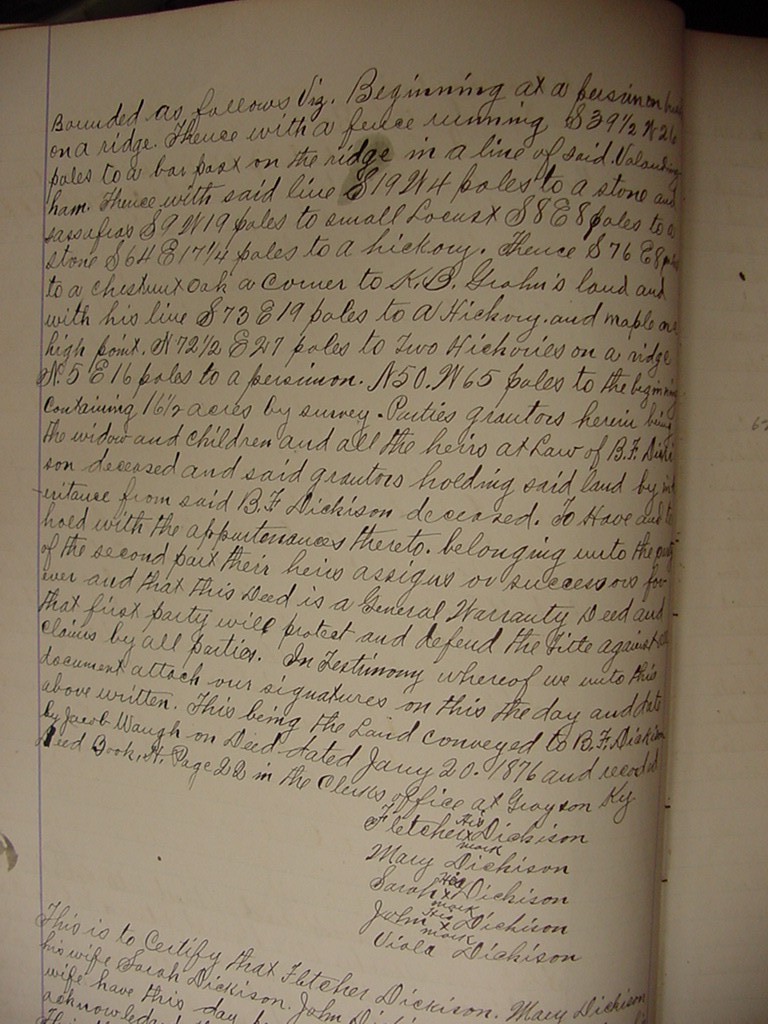 Bounded as follows Viz. Beginning at a persimon
on a ridge. Thence with a fence running S 39 1/2 W 26
poles to a bar post on the ridge in a line of said Valandin
ham. Thence with said line S 19 W 4 poles to a stone and
sassafras S 9 W 19 poles to small Locust S 8 E 8 poles to a
stone S 64 E 17 1/4 poles to a hickory. Thence S 76 E 8
to a chestnut oak a corner to K.B. Grahn's land and
with his line S 73 E 19 poles to a Hickory. and maple on
high point. N 72 1/2 E 27 poles to Two Hickories on a ridge
N. 5 E 16 poles to a persimon. N 50. W 65 poles to the beginning
containing 16 1/2 acres by survey. Parties grantors herein being
the widow and children and all the heirs at Law of B.F. Dicki
son deceased and said grantors holding said land by inh
eritance from said B.F Dickison deceased. To Have and to
hold with the appurtenances thereto. belonging unto the party
of the second part their heirs assigns or successors for
ever and that this Deed is a General Warranty Deed and
that first party will protest and defend the Title against all
claims by all parties. In Testimony whereof we unto this
document attach our signatures on this the day and date
above written. This being the Land conveyed to B.F. Dickison
by Jacob Waugh on Deed dated Jany 20. 1876 and recorded
Deed Book, H. Page 22 in the Clerks office at Grayson Ky
Fletcher His x mark Dickison
Mary Dickison
Sarah Her x mark Dickison
John His x mark Dickison
Viola Dickison
This is to Certify that Fletcher Dickison. Mary Dickison
his wife Sarah Dickison. John
wife have this day
acknowled
This